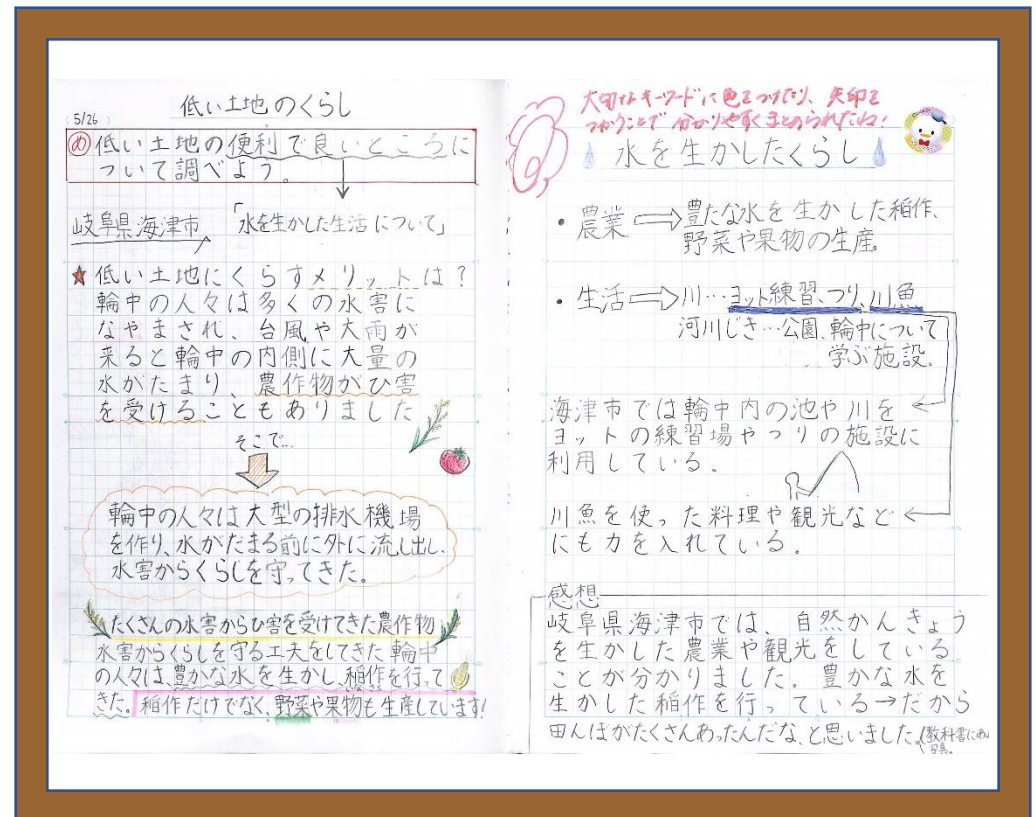 低い土地のくらし
5/26
め 低い土地の便利で良いところに
ついて調べよう。
岐阜県海津市 「水を生かした生活について」
★低い土地にくらすメリットは?
輪中の人々は多くの水害に
なやまされ、台風や大雨が
来ると輪中の内側に大量の
水がたまり、農作物がひ害
を受けることもありました
そこで…
輪中の人々は大型の排水機場
を作り、水がたまる前に外に流し出し、
水害からくらしを守ってきた。
たくさんの水害からひ害を受けてきた農作物
水害からくらしを守る工夫をしてきた輪中
の人々は、豊かな水を生かし、稲作を行って
きた。稲作だけでなく、野菜や果物も生産しています!
大切なキーワードに色をつけたり、矢印を
つかうことで分かりやすくまとめられたね!
水を生かしたくらし
・農業⇒豊たな水を生かした稲作、
野菜や果物の生産。
・生活⇒川…ヨット練習、つり、川魚
河川じき…公園、輪中について
学ぶ施設。
海津市では輪中内の池や川を
ヨットの練習場やつりの施設に
利用している。
川魚を使った料理や観光など
にも力を入れている。
感想
岐阜県海津市では、自然かんきょう
を生かした農業や観光をしている
ことが分かりました。豊かな水を
生かした稲作を行っている→だから
田んぼがたくさんあったんだな、と思いました。(教科書にあ
写真。